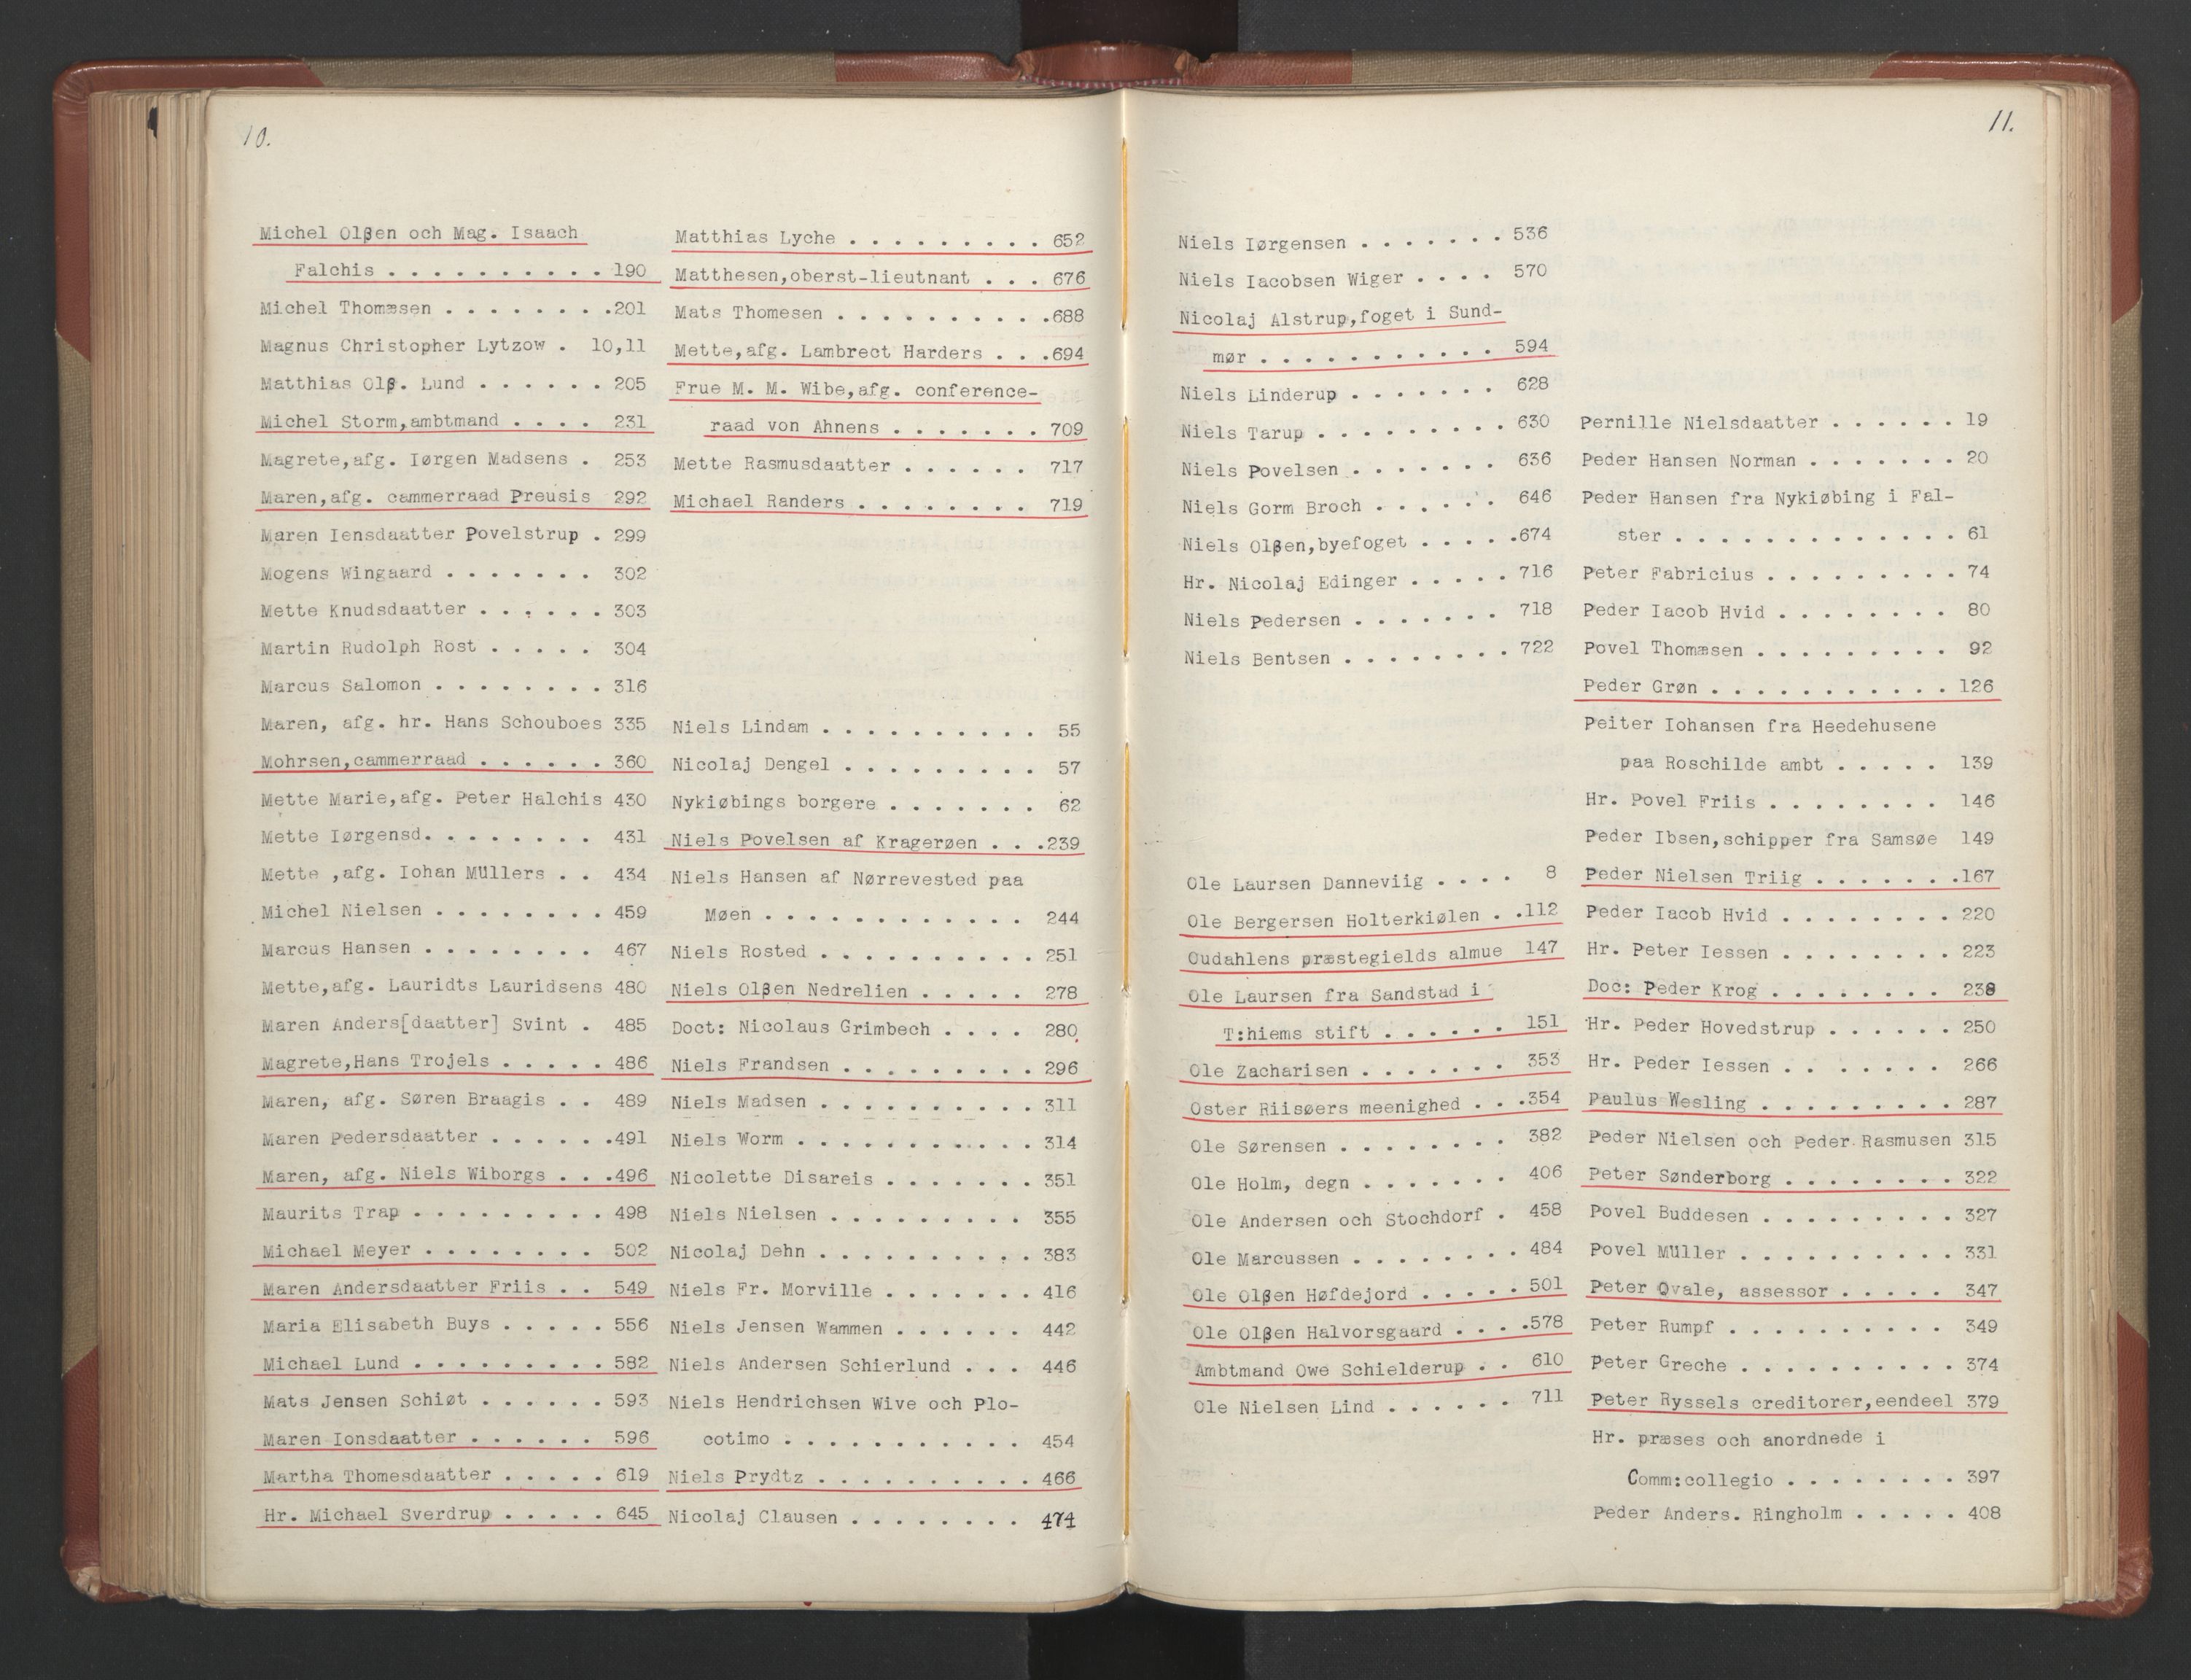 10.
Michel Olβen och Mag. Isaach
Falchis . . . . . . . . . . 190
Michel Thomæsen . . . . . . . .201
Magnus Christopher Lytzow . 10,11
Matthias Olβ. Lund . . . . . . 205
Michel Storm,ambtmand . . . . 231
Magrete,afg. Iørgen Madsens . 253
Maren,afg. cammerraad Preusis 292
Maren Iensdaatter Povelstrup . 299
Mogens Wingaard . . . . . . . 302
Mette Knudsdaatter . . . . . . 303
Martin Rudolph Rost . . . . . 304
Marcus Salomon . . . . . . . . 316
Maren, afg. hr. Hans Schouboes 335
Mohrsen,cammerraad . . . . . . 360
Mette Marie,afg. Peter Halchis 430
Mette Iørgensd. . . . . . . . 431
Mette ,afg. Iohan Müllers . . 434
Michel Nielsen . . . . . . . . 459
Marcus Hansen . . . . . . . . 467
Mette,afg. Lauridts Lauridsens 480
Maren Anders[daatter] Svint . 485
Magrete,Hans Trojels . . . . . 486
Maren, afg. Søren Braagis . . 489
Maren Pedersdaatter . . . . . .491
Maren, afg. Niels Wiborgs . . .496
Maurits Trap . . . . . . . . . 498
Michael Meyer . . . . . . . . 502
Maren Andersdaatter Friis . . 549
Maria Elisabeth Buys . . . . . 556
Michael Lund . . . . . . . . . 582
Mats Jensen Schiøt . . . . . . 593
Maren Ionsdaatter . . . . . . 596
Martha Thomesdaatter . . . . . 619
Hr. Michael Sverdrup . . . . . 645
Matthias Lyche . . . . . . . . . 652
Matthesen,oberst-lieutnant . . . 676
Mats Thomesen . . . . . . . . . .688
Mette,afg. Lambrect Harders . . .694
Frue M. M. Wibe,afg. conference-
raad von Ahnens . . . . . . . 709
Mette Rasmusdaatter . . . . . . 717
Michael Randers . . . . . . . . 719
Niels Lindam . . . . . . . . . . 55
Nicolaj Dengel . . . . . . . . . 57
Nykiøbings borgere . . . . . . . 62
Niels Povelsen af Kragerøen . . .239
Niels Hansen af Nørrevested paa
Møen . . . . . . . . . . . . 244
Niels Rosted . . . . . . . . . . 251
Niels Olβen Nedrelien . . . . . 278
Doct: Nicolaus Grimbech . . . . 280
Niels Frandsen . . . . . . . . . 296
Niels Madsen . . . . . . . . . . 311
Niels Worm . . . . . . . . . . . 314
Nicolette Disareis . . . . . . . 351
Niels Nielsen . . . . . . . . . 355
Nicolaj Dehn . . . . . . . . . . 383
Niels Fr. Morville . . . . . . . 416
Niels Jensen Wammen . . . . . . 442
Niels Andersen Schierlund . . . 446
Niels Hendrichsen Wive och Plo-
cotimo . . . . . . . . . . . 454
Niels Prydtz . . . . . . . . . . 466
Nicolaj Clausen . . . . . . . . 474
11.
Niels Iørgensen . . . . . . . 536
Niels Iacobsen Wiger . . . . 570
Nicolaj Alstrup,foget i Sund-
mør . . . . . . . . . . . 594
Niels Linderup . . . . . . . 628
Niels Tarup . . . . . . . . . 630
Niels Povelsen . . . . . . . 636
Niels Gorm Broch . . . . . . 646
Niels Olβen,byefoget . . . . .674
Hr. Nicolaj Edinger . . . . . 716
Niels Pedersen . . . . . . . 718
Niels Bentsen . . . . . . . . 722
Ole Laursen Danneviig . . . . 8
Ole Bergersen Holterkiølen . .112
Oudahlens præstegields almue 147
Ole Laursen fra Sandstad i
T:hiems stift . . . . . . 151
Ole Zacharisen . . . . . . . 353
Oster Riisøers meenighed . . .354
Ole Sørensen . . . . . . . . 382
Ole Holm, degn . . . . . . . 406
Ole Andersen och Stochdorf . 458
Ole Marcussen . . . . . . . . 484
Ole Olβen Høfdejord . . . . . 501
Ole Olβen Halvorsgaard . . . .578
Ambtmand Owe Schielderup . . 610
Ole Nielsen Lind . . . . . . 711
Pernille Nielsdaatter . . . . . . 19
Peder Hansen Norman . . . . . . . 20
Peder Hansen fra Nykiøbing i Fal-
ster . . . . . . . . . . . . . 61
Peter Fabricius . . . . . . . . . 74
Peder Iacob Hvid . . . . . . . . 80
Povel Thomæsen . . . . . . . . . 92
Peder Grøn . . . . . . . . . . . 126
Peiter Iohansen fra Heedehusene
paa Roschilde ambt . . . . . 139
Hr. Povel Friis . . . . . . . . 146
Peder Ibsen,schipper fra Samsøe 149
Peder Nielsen Triig . . . . . . .167
Peder Iacob Hvid . . . . . . . . 220
Hr. Peter Iessen . . . . . . . . 223
Doc: Peder Krog . . . . . . . . 238
Hr. Peder Hovedstrup . . . . . . 250
Hr. Peder Iessen . . . . . . . 266
Paulus Wesling . . . . . . . . . 287
Peder Nielsen och Peder Rasmusen 315
Peter Sønderborg . . . . . . . . 322
Povel Buddesen . . . . . . . . . 327
Povel Müller . . . . . . . . . . 331
Peter Ovale, assessor . . . . . 347
Peter Rumpf . . . . . . . . . . 349
Peter Greche . . . . . . . . . . 374
Peter Ryssels creditorer,eendeel 379
Hr. præses och anordnede i
Comm:collegio . . . . . . . . 397
Peder Anders. Ringholm . . . . . 408